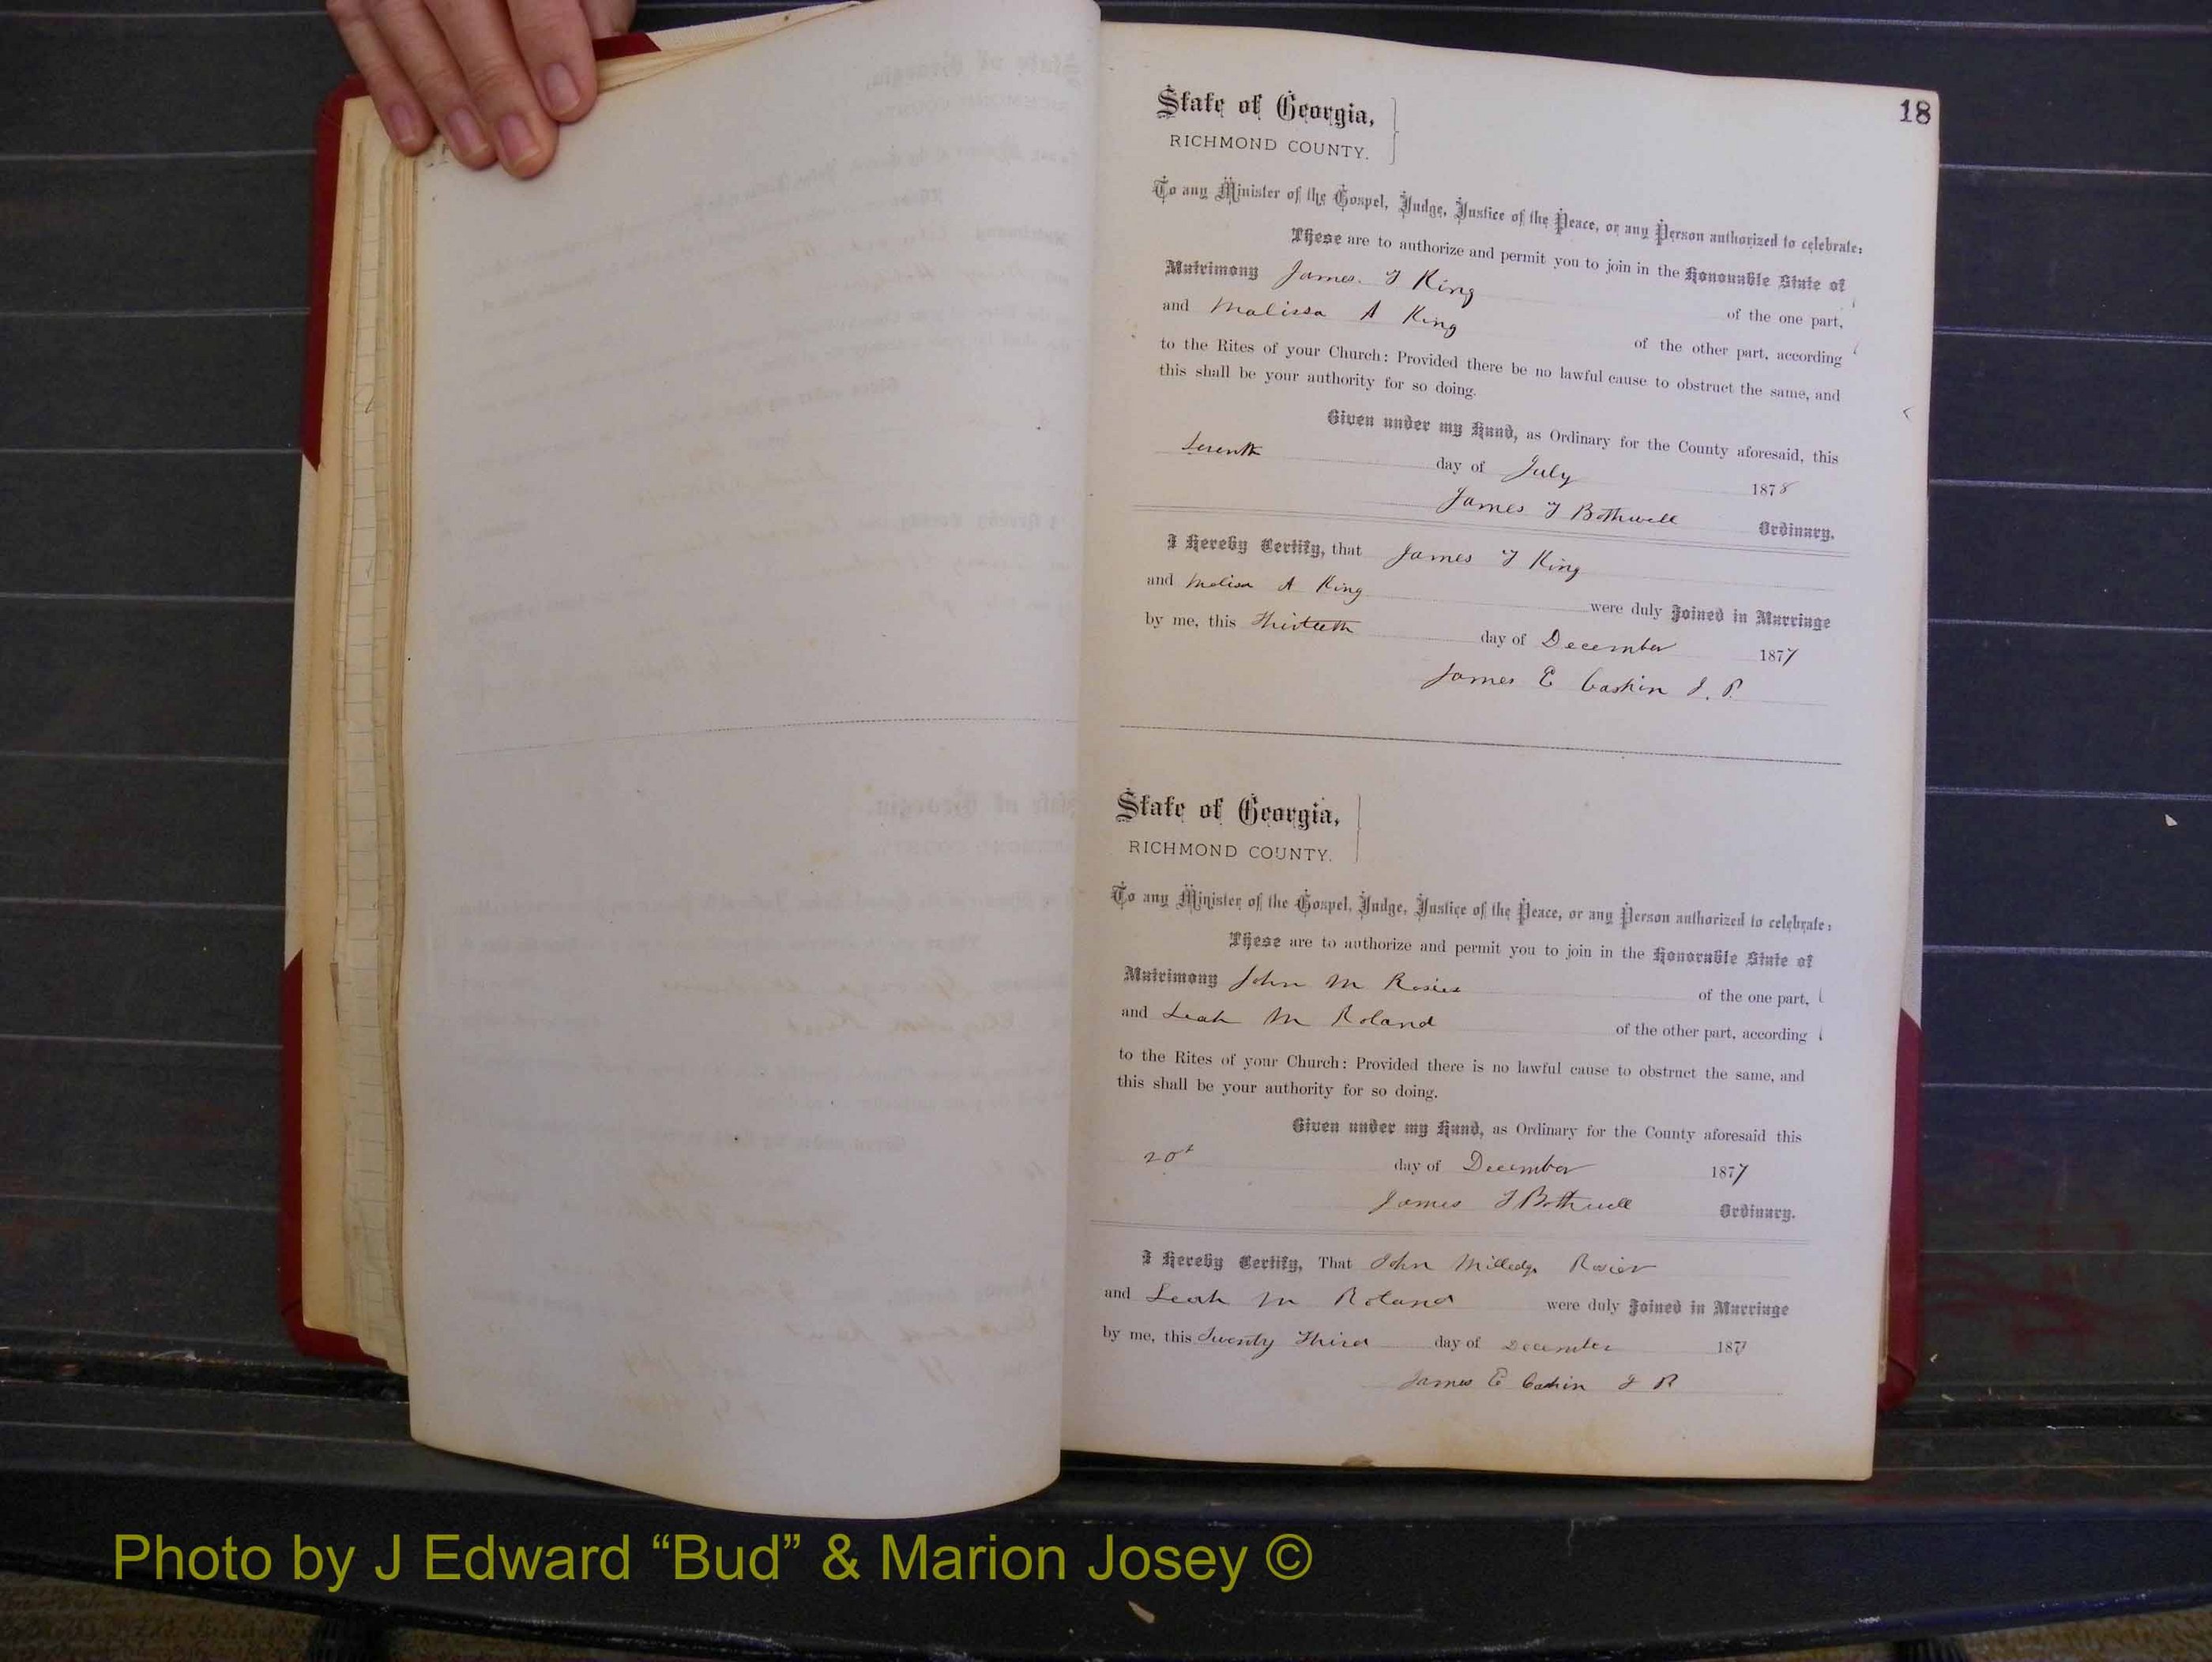 18
State of Georgia,
RICHMOND COUNTY.
To any Minister of the Gospel, Judge, Justice of the Peace, or any Person authorized to celebrate:
These are to authorize and permit you to join in the Honourable State of
Matrimony James. T King of the one part,
and Malissa A King of the other part, according
to the Rites of your Church: Provided there be no lawful cause to obstruct the same, and
this shall be your authority for so doing.
Given under my Hand, as Ordinary for the County aforesaid, this
Seventh day of July 1878
James T Bothwell Ordinary.
I Hereby Certify, that James T King
and Malisa A King were duly Joined in Marriage
by me, this day of December 1877
James E Cashin J. P.
State of Georgia,
RICHMOND COUNTY.
To any Minister of the Gospel, Judge, Justice of the Peace, or any Person authorized to celebrate:
These are to authorize and permit you to join in the Honorable State of
Matrimony John M Rosier of the one part,
and Leah M Roland of the other part, according
to the Rites of your Church: Provided there is no lawful cause to obstruct the same, and
this shall be your authority for so doing.
Given under my Hand, as Ordinary for the County aforesaid this
20t day of December 1877
James T Bothwell Ordinary.
I Hereby Certify, That John Milledge Rosier
and Leah M Roland were duly Joined in Marriage
by me, this Twenty Third day of December 1877
James E Cashin J P
Photo by J Edward “Bud” & Marion Josey ©